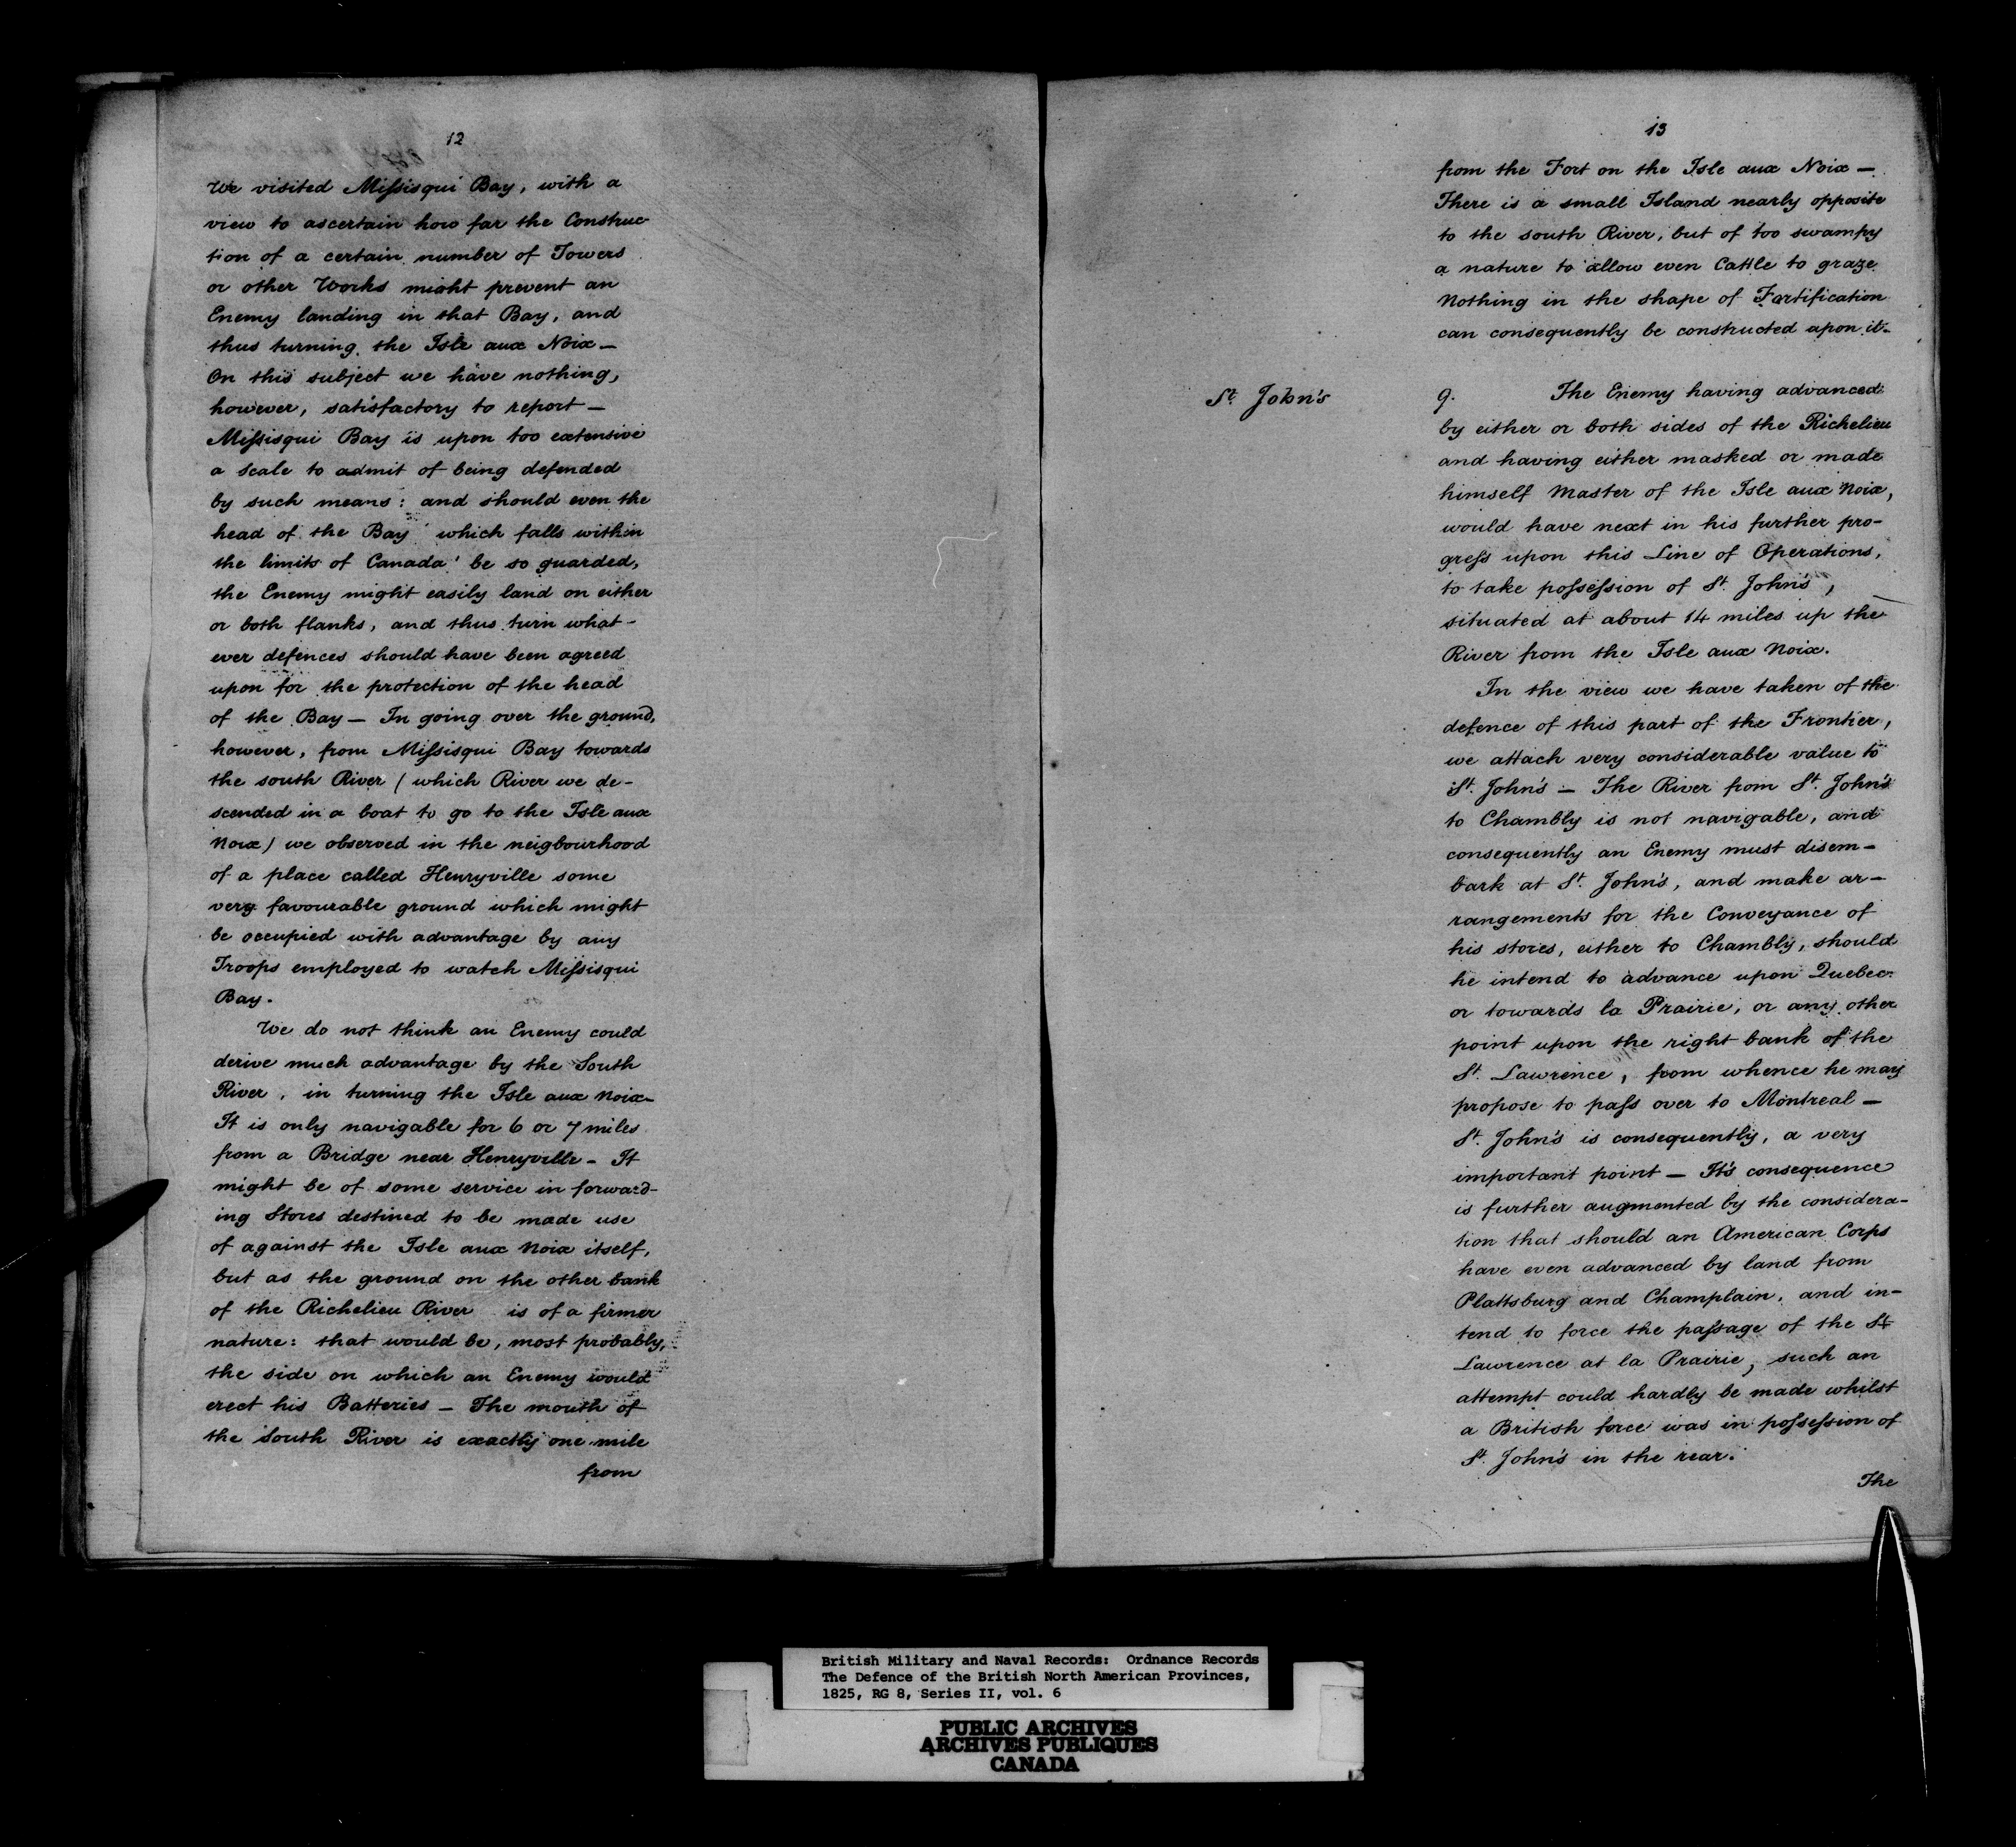 12
We visited Miſsisqui Bay, with a
view to ascertain how far the Construc-
tion of a certain number of Towers
or other Works might prevent an
Enemy landing in that Bay, and
thus turning the Isle aux Noix —
On this subject we have nothing,
however, satisfactory to report —
Miſsisqui Bay is upon too extensive
a scale to admit of being defended
by such means: and should even the
head of the Bay ' which falls within
the limits of Canada ' be so guarded,
the Enemy might easily land on either
or both flanks, and thus turn what-
ever defences should have been agreed
upon for the protection of the head
of the Bay — In going over the ground,
however, from Miſsisqui Bay towards
the south River ( which River we de-
scended in a boat to go to the Isle aux
Noix ) we observed in the neigbourhood
of a place called Henryville some
very favourable ground which might
be occupied with advantage by any
Troops employed to watch Miſsisqui
Bay.
We do not think an Enemy could
derive much advantage by the South
River, in turning the Isle aux Noix—
It is only navigable for 6 or 7 miles
from a Bridge near Henryville — It
might be of some service in forward-
ing Stores destined to be made use
of against the Isle aux Noix itself,
but as the ground on the other bank
of the Richelieu River is of a firmer
nature: that would be, most probably,
the side on which an Enemy would
erect his Batteries — The mouth of
the South River is exactly one mile
from
13
from the Fort on the Isle aux Noix —
There is a small Island nearly opposite
to the south River, but of too swampy
a nature to allow even Cattle to graze
Nothing in the shape of Fortification
can consequently be constructed upon it—
St. John's
9. The Enemy having advanced
by either or both sides of the Richelieu
and having either masked or made
himself Master of the Isle aux Noix,
would have next in his further pro-
greſs upon this Line of Operations,
to take poſseſsion of St. John's,
situated at about 14 miles up the
River from the Isle aux Noix.
In the view we have taken of the
defence of this part of the Frontier,
we attach very considerable value to
St. John's — The River from St. John's
to Chambly is not navigable, and
consequently an Enemy must disem-
bark at St. John's, and make ar-
rangements for the Conveyance of
his stores, either to Chambly, should
he intend to advance upon Quebec
or towards la Prairie, or any other
point upon the right bank of the
St. Lawrence, from whence he may
propose to paſs over to Montreal —
St. John's is consequently, a very
important point — It's consequence
is further augmented by the considera-
tion that should an American Corps
have even advanced by land from
Plattsburg and Champlain, and in-
tend to force the paſsage of the St
Lawrence at la Prairie, such an
attempt could hardly be made whilst
a British force was in poſseſsion of
St. John's in the rear.
The
British Military and Naval Records: Ordnance Records
The Defence of the British North American Provinces,
1825, RG 8, Series II, vol. 6
PUBLIC ARCHIVES
ARCHIVES PUBLIQUES
CANADA